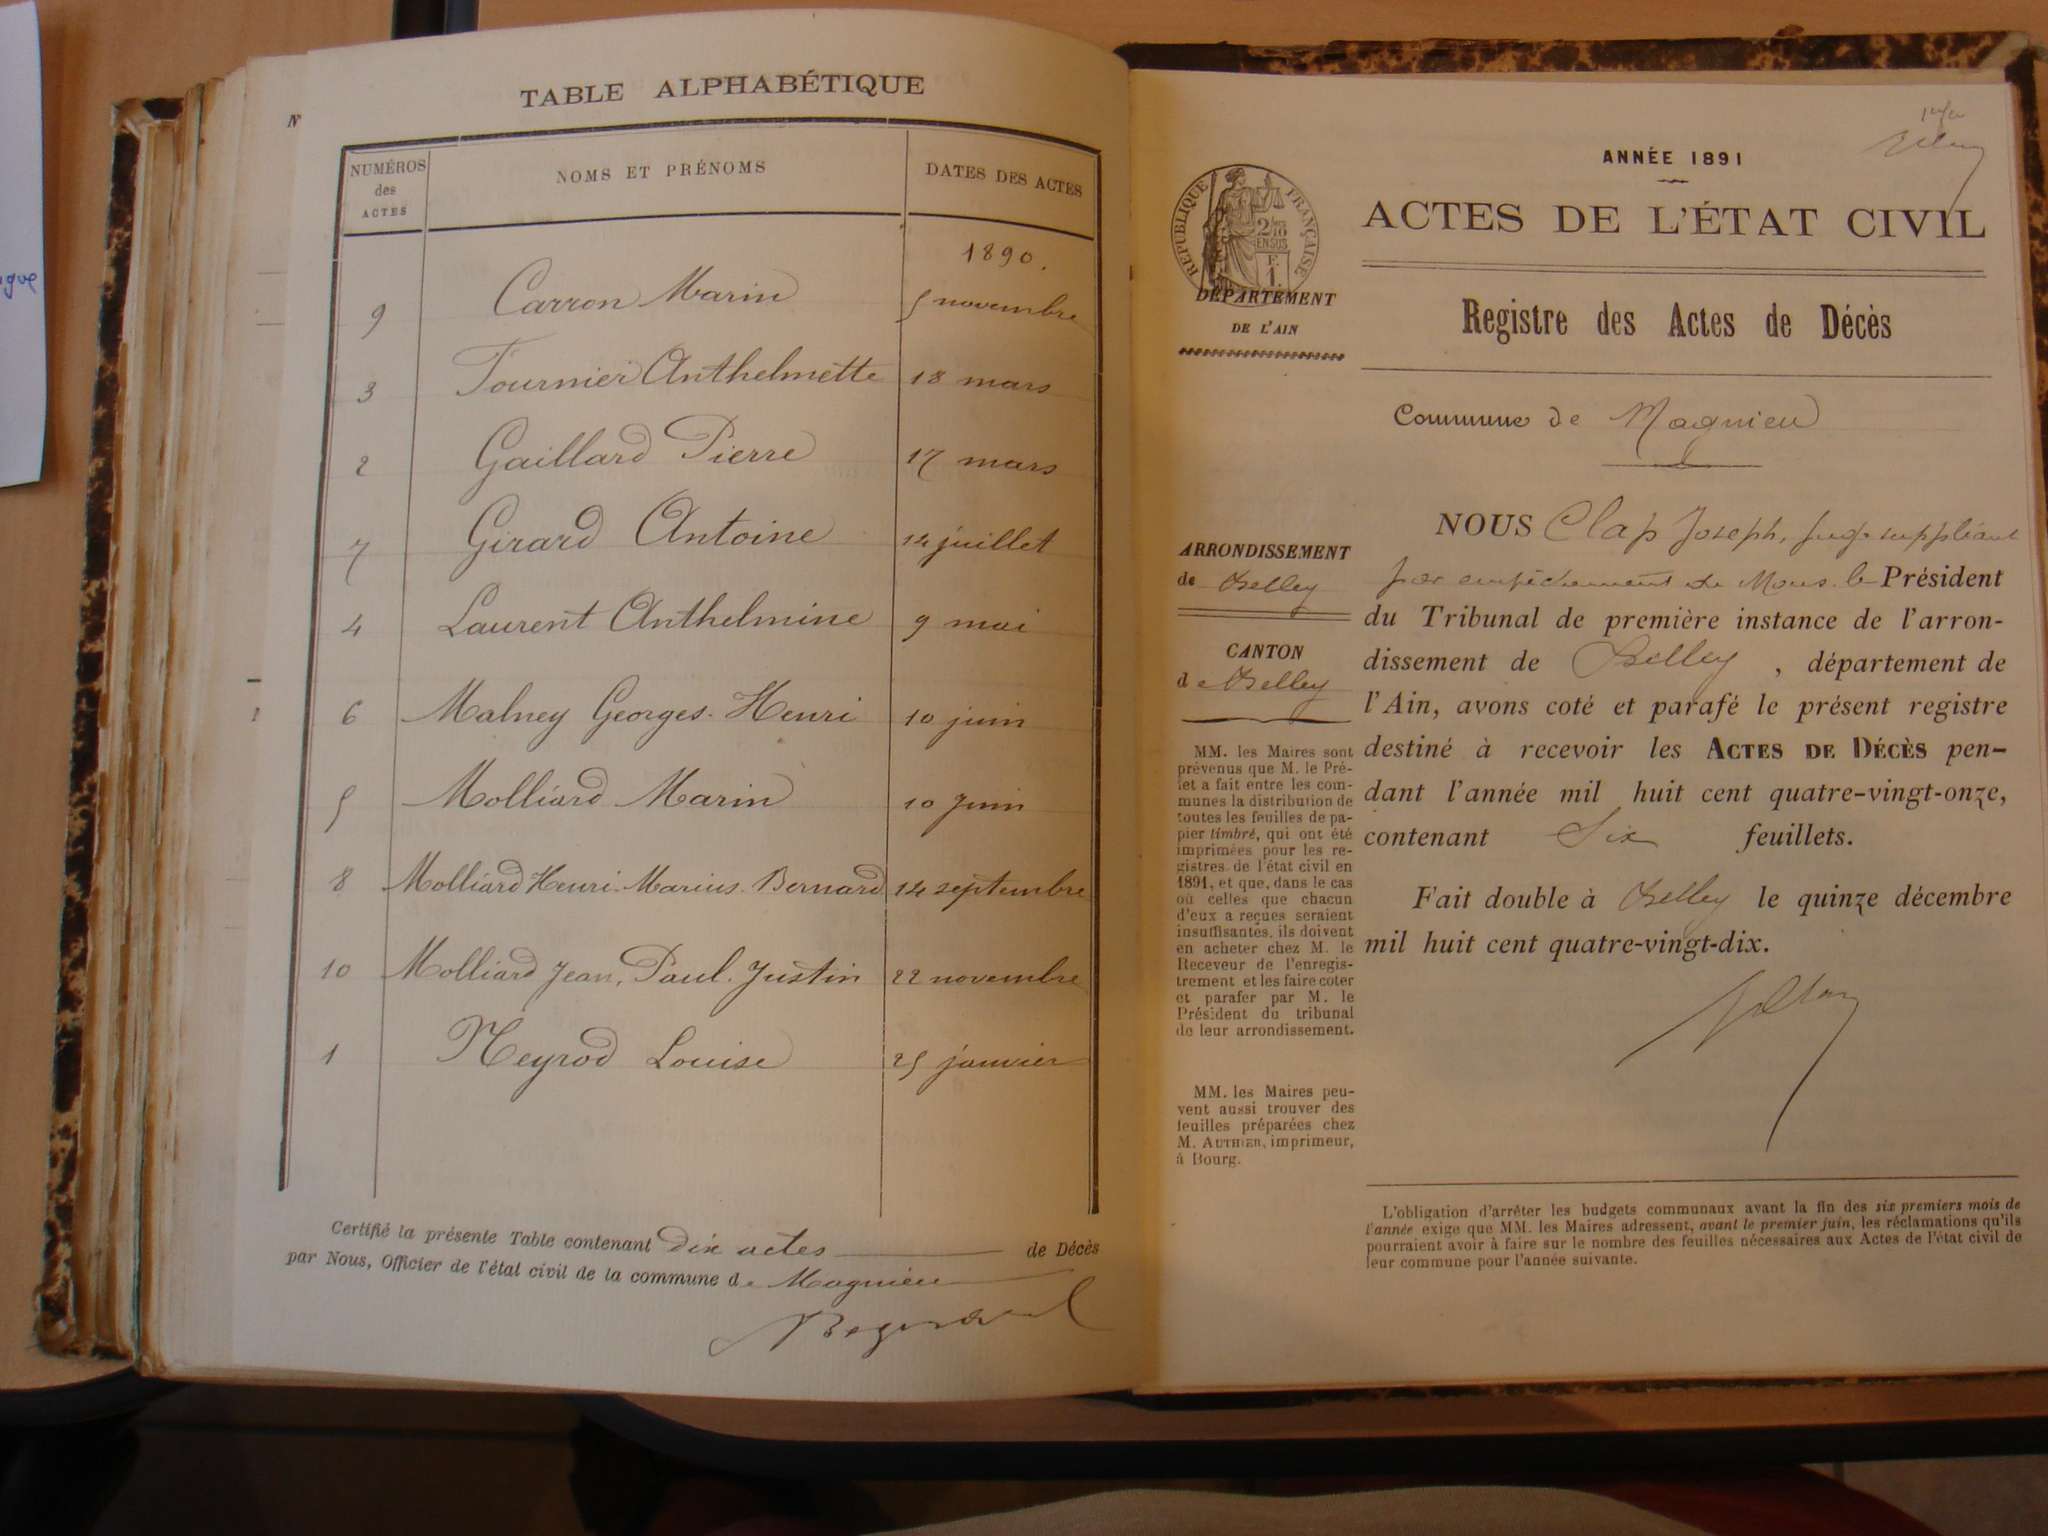 TABLE ALPHABÉTIQUE
N
NUMÉROS des ACTES
NOMS ET PRÉNOMS
DATES DES ACTES
1890.
9 Carron Marin 5 novembre
3 Fournier Anthelmette 18 mars
2 Gaillard Pierre 17 mars
7 Girard Antoine 14 juillet
4 Laurent Anthelmine 9 mai
6 Malney Georges-Henri 10 juin
5 Molliard Marin 10 juin
8 Molliard Henri-Marius-Bernard 14 septembre
10 Molliard Jean, Paul. Justin 22 novembre
1 Neyrod Louise 25 janvier
Certifié la présente Table contenant dix actes de Décès
par Nous, Officier de l'état civil de la commune de Magnieu
ANNÉE 1891
ACTES DE L'ÉTAT CIVIL
RÉPUBLIQUE FRANÇAISE
2/10
EN SUS
F.
1.
DÉPARTEMENT
DE L'AIN
Registre des Actes de Décès
Commune de Magnieu
ARRONDISSEMENT
de Belley
CANTON
de Belley
NOUS Clap Joseph, Juge suppléant
par empêchement de Mons. le Président
du Tribunal de première instance de l'arron-
dissement de Belley, département de
l'Ain, avons coté et parafé le présent registre
destiné à recevoir les ACTES DE DÉCÈS pen-
dant l'année mil huit cent quatre-vingt-onze,
contenant Six feuillets.
Fait double à Belley le quinze décembre
mil huit cent quatre-vingt-dix.
MM. les Maires sont
prévenus que M. le Pré-
fet a fait entre les com-
munes la distribution de
toutes les feuilles de pa-
pier timbré, qui ont été
imprimées pour les re-
gistres de l'état civil en
1891, et que, dans le cas
où celles que chacun
d'eux a reçues seraient
insuffisantes, ils doivent
en acheter chez M. le
Receveur de l'enregis-
trement et les faire coter
et parafer par M. le
Président du tribunal
de leur arrondissement.
MM. les Maires peu-
vent aussi trouver des
feuilles préparées chez
M. AUTHIER, imprimeur,
à Bourg.
L'obligation d'arrêter les budgets communaux avant la fin des six premiers mois de
l'année exige que MM. les Maires adressent, avant le premier juin, les réclamations qu'ils
pourraient avoir à faire sur le nombre des feuilles nécessaires aux Actes de l'état civil de
leur commune pour l'année suivante.